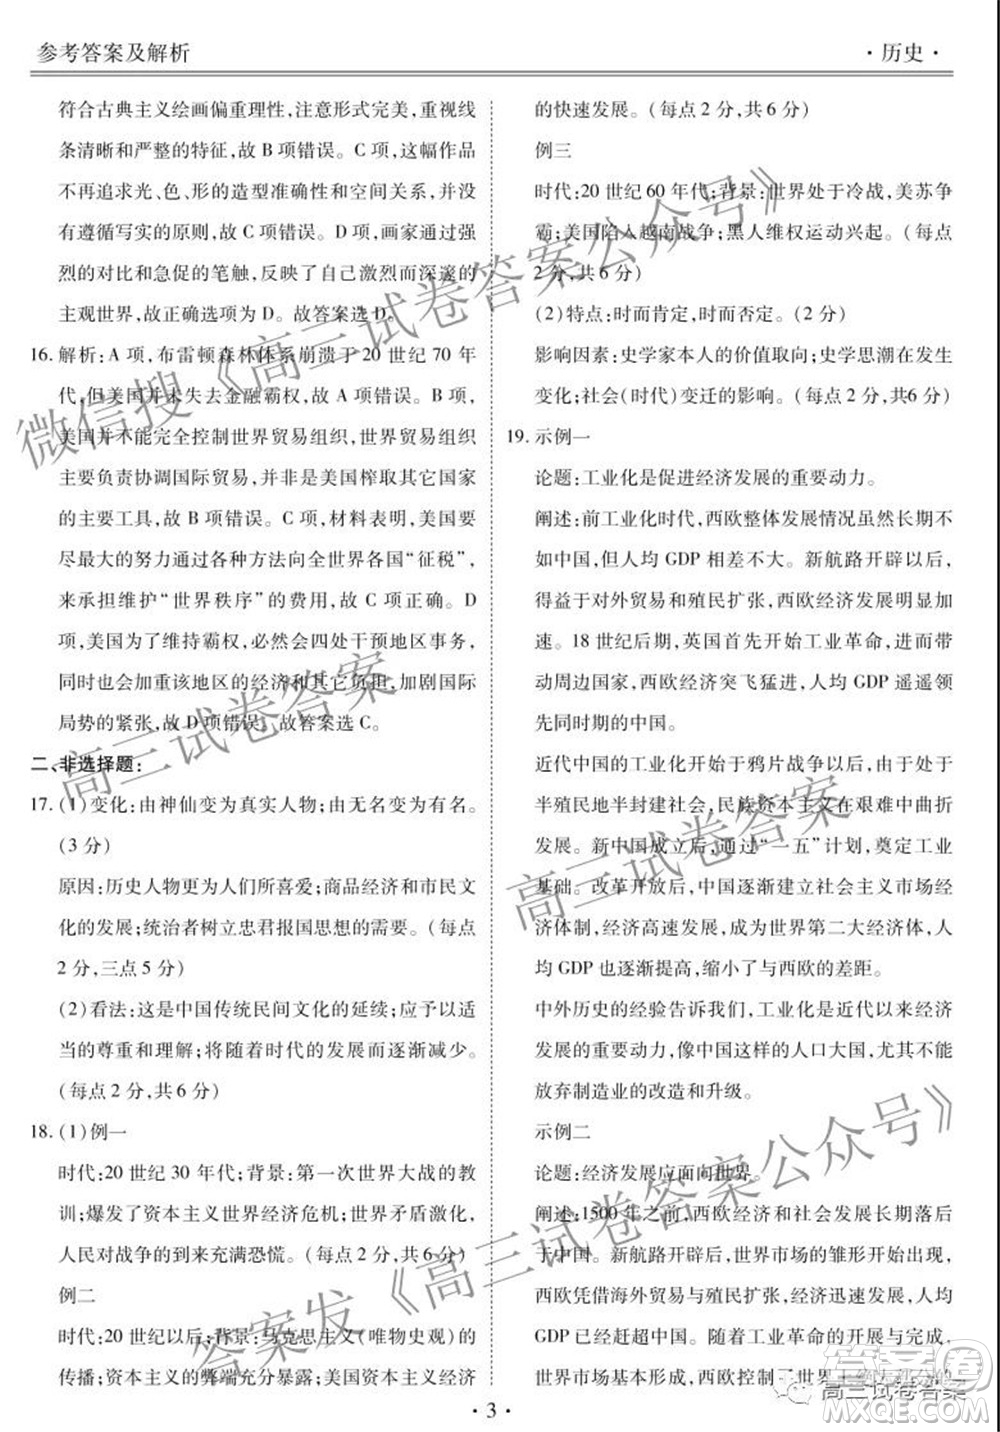 参考答案及解析
·历史·
符合古典主义绘画偏重理性，注意形式完美，重视线
条清晰和严整的特征，故 B 项错误。C 项，这幅作品
不再追求光、色、形的造型准确性和空间关系，并没
有遵循写实的原则，故 C 项错误。D 项，画家通过强
烈的对比和急促的笔触，反映了自己激烈而深邃的
主观世界，故正确选项为 D。故答案选 D。
16. 解析：A 项，布雷顿森林体系崩溃于 20 世纪 70 年
代，但美国并未失去金融霸权，故 A 项错误。B 项，
美国并不能完全控制世界贸易组织，世界贸易组织
主要负责协调国际贸易，并非是美国榨取其它国家
的主要工具，故 B 项错误。C 项，材料表明，美国要
尽最大的努力通过各种方法向全世界各国“征税”，
来承担维护“世界秩序”的费用，故 C 项正确。D
项，美国为了维持霸权，必然会四处干预地区事务，
同时也会加重该地区的经济和其它负担，加剧国际
局势的紧张，故 D 项错误。故答案选 C。
二、非选择题：
17. (1)变化：由神仙变为真实人物；由无名变为有名。
(3 分)
原因：历史人物更为人们所喜爱；商品经济和市民文
化的发展；统治者树立忠君报国思想的需要。(每点
2 分，三点 5 分)
(2)看法：这是中国传统民间文化的延续；应予以适
当的尊重和理解；将随着时代的发展而逐渐减少。
(每点 2 分，共 6 分)
18. (1)例一
时代：20 世纪 30 年代；背景：第一次世界大战的教
训；爆发了资本主义世界经济危机；世界矛盾激化，
人民对战争的到来充满恐慌。(每点 2 分，共 6 分)
例二
时代：20 世纪以后；背景：马克思主义(唯物史观)的
传播；资本主义的弊端充分暴露；美国资本主义经济
的快速发展。(每点 2 分，共 6 分)
例三
时代：20 世纪 60 年代；背景：世界处于冷战，美苏争
霸；美国陷入越南战争；黑人维权运动兴起。(每点
2 分，共 6 分)
(2)特点：时而肯定，时而否定。(2 分)
影响因素：史学家本人的价值取向；史学思潮在发生
变化；社会(时代)变迁的影响。(每点 2 分，共 6 分)
19. 示例一
论题：工业化是促进经济发展的重要动力。
阐述：前工业化时代，西欧整体发展情况虽然长期不
如中国，但人均 GDP 相差不大。新航路开辟以后，
得益于对外贸易和殖民扩张，西欧经济发展明显加
速。18 世纪后期，英国首先开始工业革命，进而带
动西欧国家，西欧经济突飞猛进，人均 GDP 遥遥领
先同时期的中国。
近代中国的工业化开始于鸦片战争以后，由于处于
半殖民地半封建社会，民族资本主义在艰难中曲折
发展。新中国成立后，通过“一五”计划，奠定工业
基础。改革开放后，中国逐渐建立社会主义市场经
济体制，经济高速发展，成为世界第二大经济体，人
均 GDP 也逐渐提高，缩小了与西欧的差距。
中外历史的经验告诉我们，工业化是近代以来经济
发展的重要动力，像中国这样的人口大国，尤其不能
放弃制造业的改造和升级。
示例二
论题：经济发展应面向世界。
阐述：1500 年之前，西欧经济和社会发展长期落后
于中国。新航路开辟后，世界市场的雏形开始出现，
西欧凭借海外贸易与殖民扩张，经济发展迅速，人均
GDP 已经赶超中国。随着工业革命的开展与完成，
世界市场基本形成，西欧控制了世界
· 3 ·
微信搜《高三试卷答案公众号》
高三试卷答案
高三试卷答案
答案发《高三试卷答案公众号》
高三试卷答案
答案圈
MXQE.COM